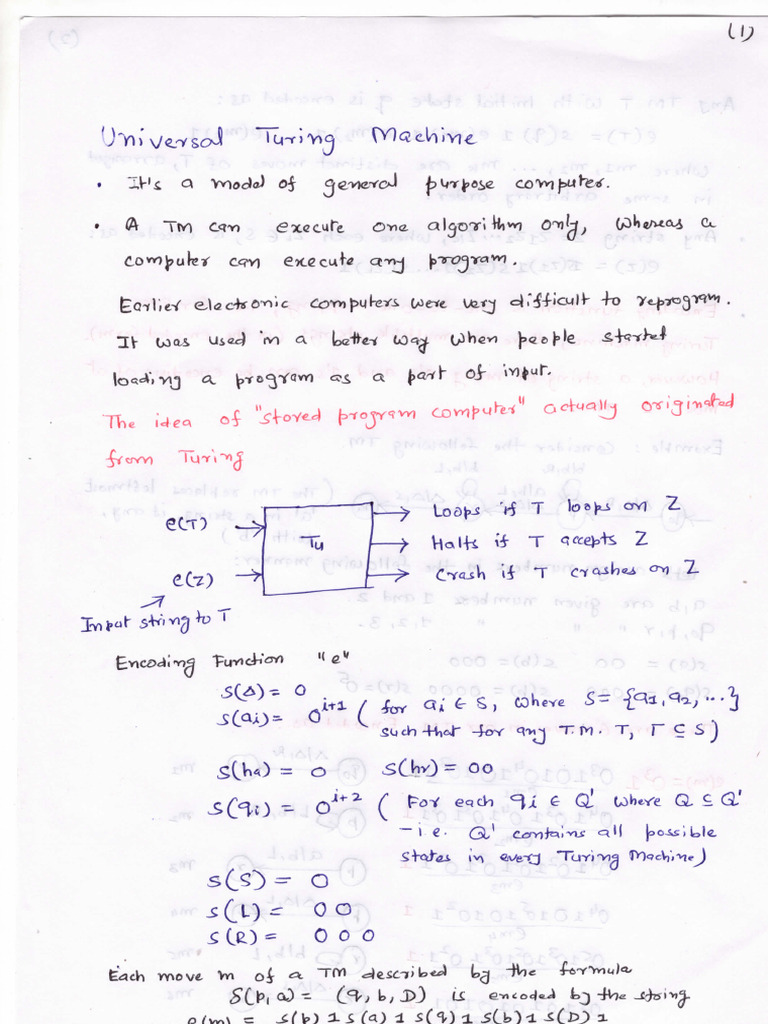 (1)
Universal Turing Machine
• It's a model of general purpose computer.
• A TM can execute one algorithm only, whereas a
computer can execute any program.
Earlier electronic computers were very difficult to reprogram.
It was used in a better way when people started
loading a program as a part of input.
The idea of "stored program computer" actually originated
from Turing
e(T) → Tu → Loops if T loops on Z
→ Halts if T accepts Z
e(Z) → → Crash if T crashes on Z
Input string to T
Encoding Function "e"
S(Δ) = 0
S(ai) = 0^{i+1} ( for ai ∈ S, where S = {a1, a2, ...}
such that for any T.M. T, Γ ⊆ S)
S(ha) = 0 S(hr) = 00
S(qi) = 0^{i+2} ( For each qi ∈ Q' where Q ⊆ Q'
-i.e. Q' contains all possible
states in every Turing Machine)
S(S) = 0
S(L) = 00
S(R) = 000
Each move m of a TM described by the formula
δ(p,a) = (q, b, D) is encoded by the string
e(m) = S(p) 1 S(a) 1 S(q) 1 S(b) 1 S(D) 1